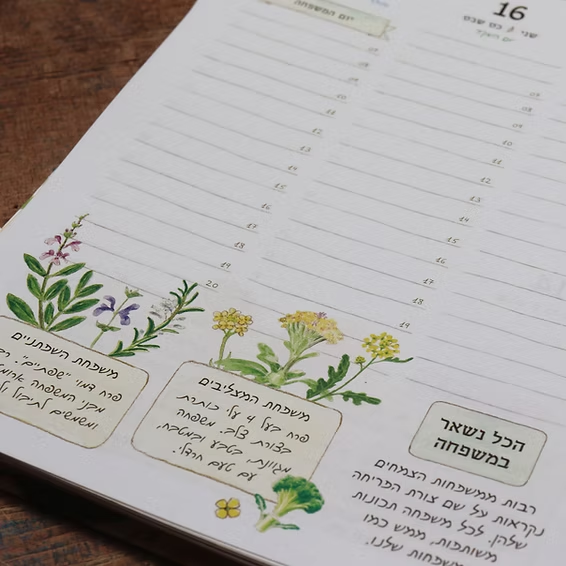 16
שני / כט שבט
יום המשפחה
07
08
09
10
11
12
13
14
15
16
17
18
07
08
09
10
11
12
13
14
15
16
17
18
19
20
19
משפחת השפתניים
פרח דמוי "שפתיים".
המשפחה
ומשמשים לתיבול
משפחת המצליבים
פרח בעל 4 עלי כותרת
בצורת צלב. משפחה
מגוונת, בטבע ובמטבח,
עם טעם חרדלי.
הכל נשאר
במשפחה
רבות ממשפחות הצמחים
נקראות על שם צורת הפריחה
שלהן. לכל משפחה תכונות
משותפות, ממש כמו
משפחות שלנו.